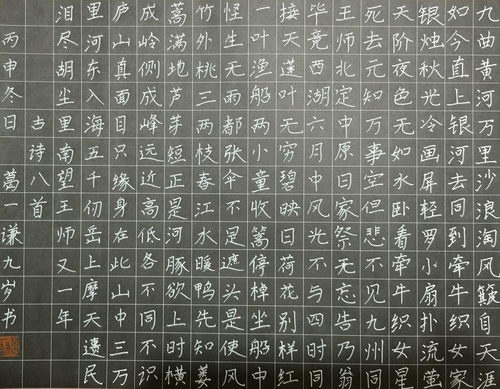 九曲黄河万里沙浪淘风簸自天涯
如今直上银河去同到牵牛织女家
银烛秋光冷画屏轻罗小扇扑流萤
天阶夜色凉如水卧看牵牛织女星
死去元知万事空但悲不见九州同
王师北定中原日家祭无忘告乃翁
毕竟西湖六月中风光不与四时同
接天莲叶无穷碧映日荷花别样红
一叶渔船两小童收篙停棹坐船中
怪生无雨都张伞不是遮头是使风
竹外桃三两枝春江水暖鸭先知蒌
蒿满地芦芽短正是河豚欲上时横
成岭侧成峰远近高低各不同不识
庐山真面目只缘身在此山中三万
里河东入海五千仞岳上摩天遗民
泪尽胡尘里南望王师又一年
古诗八首
丙申冬日萬一谦九岁书